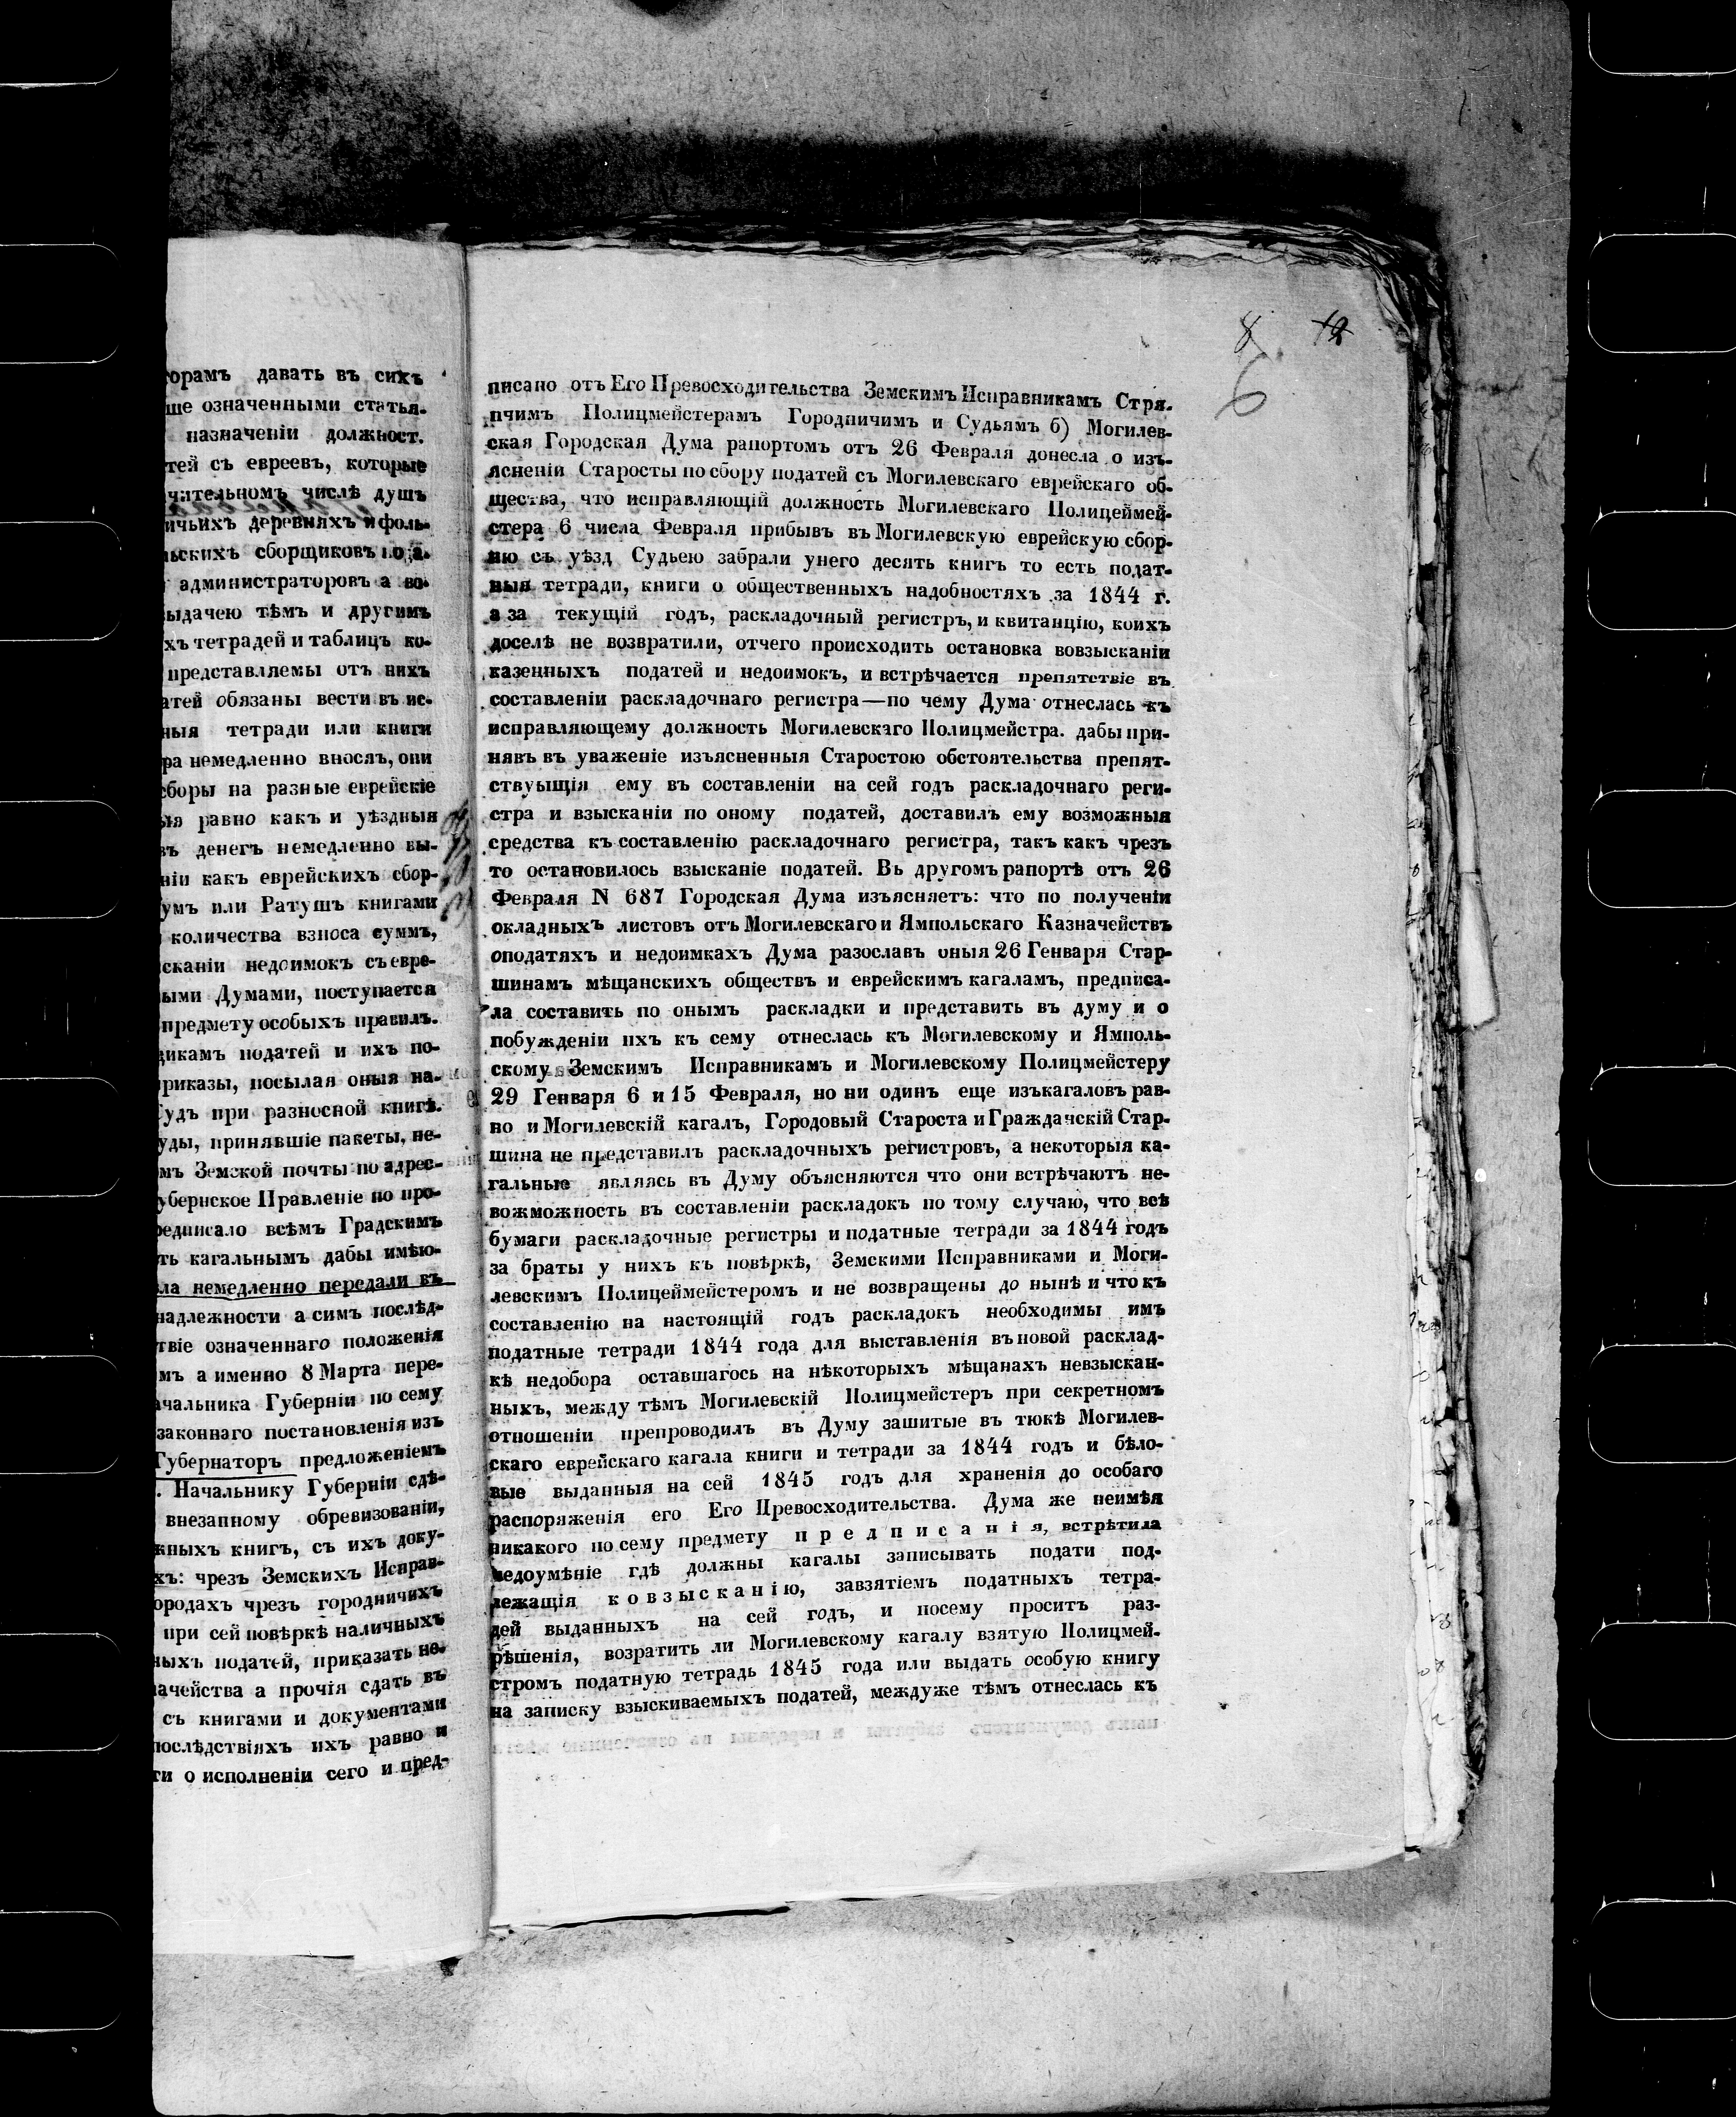 торамъ давать въ сихъ
ше означенными статья-
назначеніи должност.
тей съ евреевъ, которые
чительномъ числѣ душъ
ичьихъ деревняхъ и фоль-
ьскихъ сборщиковъ
администраторовъ а во-
ыдачею тѣмъ и другимъ
хъ тетрадей и таблицъ ко-
представляемы отъ нихъ
атей обязаны вести въ ис-
ныя тетради или книги
ра немедленно вносятъ, они
сборы на разные еврейскіе
ыя равно какъ и уѣздныя
въ денегъ немедленно вы-
ніи какъ еврейскихъ сбор-
умъ или Ратушъ книгами
количества взноса суммъ,
сканіи недоимокъ съ евре-
ыми Думами, поступается
предмету особыхъ правилъ.
щикамъ податей и ихъ по-
приказы, посылая оныя на-
Судъ при разносной книгѣ.
уды, принявшіе пакеты, не-
мъ Земской почты по адрес-
убернское Правленіе по про-
редписало всѣмъ Градскимъ
ть кагальнымъ дабы имѣю-
ла немедленно передали въ
надлежности а симъ послѣд-
твіе означеннаго положенія
мъ а именно 8 Марта пере-
ачальника Губерніи по сему
законнаго постановленія изъ
Губернаторъ предложеніемъ
. Начальнику Губерніи сдѣ-
внезапному обревизованіи,
жныхъ книгъ, съ ихъ доку-
хъ: чрезъ Земскихъ Исправ-
ородахъ чрезъ городничихъ
при сей повѣркѣ наличныхъ
ныхъ податей, приказать не-
ачейства а прочія сдать въ
съ книгами и документами
послѣдствіяхъ ихъ равно и
ти о исполненіи сего и пред-
8 12
6
писано отъ Его Превосходительства Земскимъ Исправникамъ Стря-
пчимъ Полицмейстерамъ Городничимъ и Судьямъ 6) Могилев-
ская Городская Дума рапортомъ отъ 26 Февраля донесла о изъ-
ясненіи Старосты по сбору податей съ Могилевскаго еврейскаго об-
щества, что исправляющій должность Могилевскаго Полицеймей-
стера 6 числа Февраля прибывъ въ Могилевскую еврейскую сбор-
ню съ уѣзд Судьею забрали унего десять книгъ то есть подат-
ныя тетради, книги о общественныхъ надобностяхъ за 1844 г.
а за текущій годъ, раскладочный регистръ, и квитанцію, коихъ
доселѣ не возвратили, отчего происходитъ остановка вовзысканіи
казенныхъ податей и недоимокъ, и встрѣчается препятствіе въ
составленіи раскладочнаго регистра—по чему Дума отнеслась къ
исправляющему должность Могилевскаго Полицмейстра. дабы при-
нявъ въ уваженіе изъясненныя Старостою обстоятельства препят-
ствуыщія ему въ составленіи на сей годъ раскладочнаго реги-
стра и взысканіи по оному податей, доставилъ ему возможныя
средства къ составленію раскладочнаго регистра, такъ какъ чрезъ
то остановилось взысканіе податей. Въ другомъ рапортѣ отъ 26
Февраля N 687 Городская Дума изъясняетъ: что по полученіи
окладныхъ листовъ отъ Могилевскаго и Ямпольскаго Казначействъ
оподатяхъ и недоимкахъ Дума разославъ оныя 26 Генваря Стар-
шинамъ мѣщанскихъ обществъ и еврейскимъ кагаламъ, предписа-
ла составить по онымъ раскладки и представить въ думу и о
побужденіи ихъ къ сему отнеслась къ Могилевскому и Ямполь-
скому Земскимъ Исправникамъ и Могилевскому Полицмейстеру
29 Генваря 6 и 15 Февраля, но ни одинъ еще изъкагаловъ рав-
но и Могилевскій кагалъ, Городовый Староста и Гражданскій Стар-
шина не представилъ раскладочныхъ регистровъ, а некоторыя ка-
гальные являясь въ Думу объясняются что они встрѣчаютъ не-
вожможность въ составленіи раскладокъ по тому случаю, что всѣ
бумаги раскладочные регистры и податные тетради за 1844 годъ
за браты у нихъ къ повѣркѣ, Земскими Исправниками и Моги-
левскимъ Полицеймейстеромъ и не возвращены до нынѣ и что къ
составленію на настоящій годъ раскладокъ необходимы имъ
податные тетради 1844 года для выставленія въ новой расклад-
кѣ недобора оставшагось на нѣкоторыхъ мѣщанахъ невзыскан-
ныхъ, между тѣмъ Могилевскій Полицмейстеръ при секретномъ
отношеніи препроводилъ въ Думу зашитые въ тюкѣ Могилев-
скаго еврейскаго кагала книги и тетради за 1844 годъ и бѣло-
вые выданныя на сей 1845 годъ для храненія до особаго
распоряженія его Его Превосходительства. Дума же неимѣя
никакого по сему предмету предписанія, встрѣтила
недоумѣніе гдѣ должны кагалы записывать подати под-
лежащія ковзысканію, завзятіемъ податныхъ тетра-
дей выданныхъ на сей годъ, и посему проситъ раз-
рѣшенія, возратить ли Могилевскому кагалу взятую Полицмей-
стромъ податную тетрадь 1845 года или выдать особую книгу
на записку взыскиваемыхъ податей, междуже тѣмъ отнеслась къ